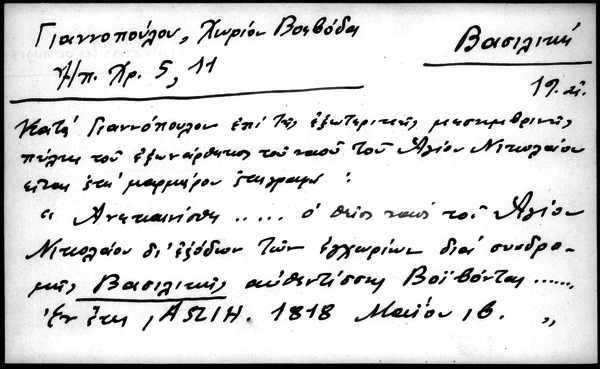 Γιαννοπούλου, Χωρίον Βοεβόδα
Ἠπ. Χρ. 5, 11
Βασιλική
19. αἰ.
Κατά Γιαννόπουλον ἐπί τῆς ἐξωτερικῆς μεσημβρινῆς
πύλης τοῦ ἐξωνάρθηκος τοῦ ναοῦ τοῦ Ἁγίου Νικολάου
εἶναι ἐπί μαρμάρου ἐπιγραφή :
" Ἀνεκαινίσθη ..... ὁ θεῖος ναός τοῦ Ἁγίου
Νικολάου δι' ἐξόδων τῶν ἐγχωρίων διά συνδρο-
μῆς Βασιλικῆς αὐθεντίσσης Βοϊβόντα ......
Ἐν ἔτει ,ΑΩΙΗ. 1818 Μαΐου ιβ. "